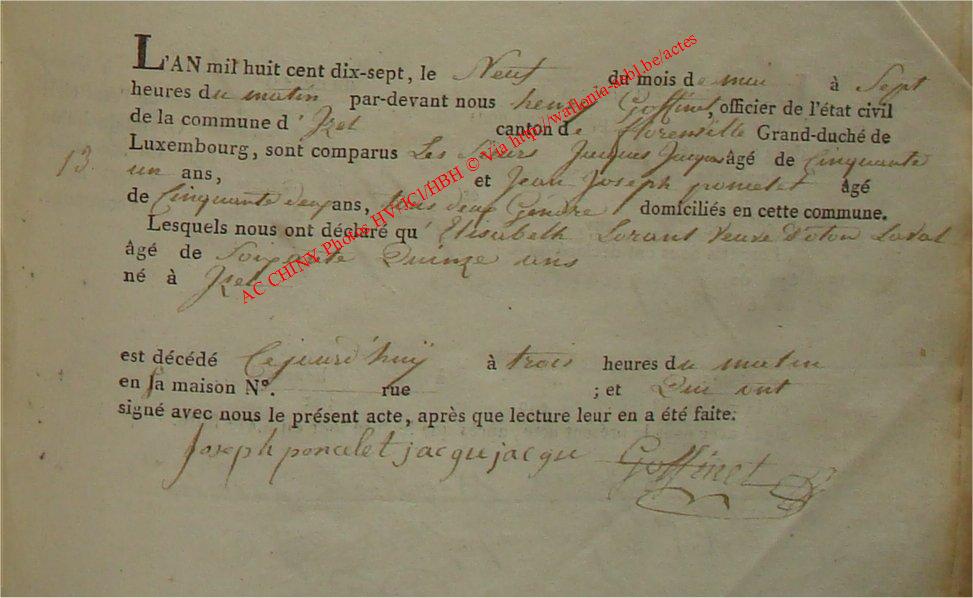 L'AN mil huit cent dix-sept, le Neuf du mois de mai à Sept
heures du matin par-devant nous henry Goffinet, officier de l'état civil
de la commune d' Izel canton de florenville Grand-duché de
13. Luxembourg, sont comparus Les Sieurs Jacques Jacques âgé de Cinquante
un ans, et Jean Joseph poncelet âgé
de Cinquante deux ans, tous deux Gendre domiciliés en cette commune.
Lesquels nous ont déclaré qu' Elisabeth Lorant veuve d'oton Laval
âgé de Soixante Quinze ans
né à Izel
est décédé Cejourd'huÿ à trois heures du matin
en sa maison N°. rue ; et Qui ont
signé avec nous le présent acte, après que lecture leur en a été faite.
Joseph poncelet jacque jacque Goffinet
AC CHINY Photos HV/JCl/HBH © Via http://wallonia-asbl.be/actes